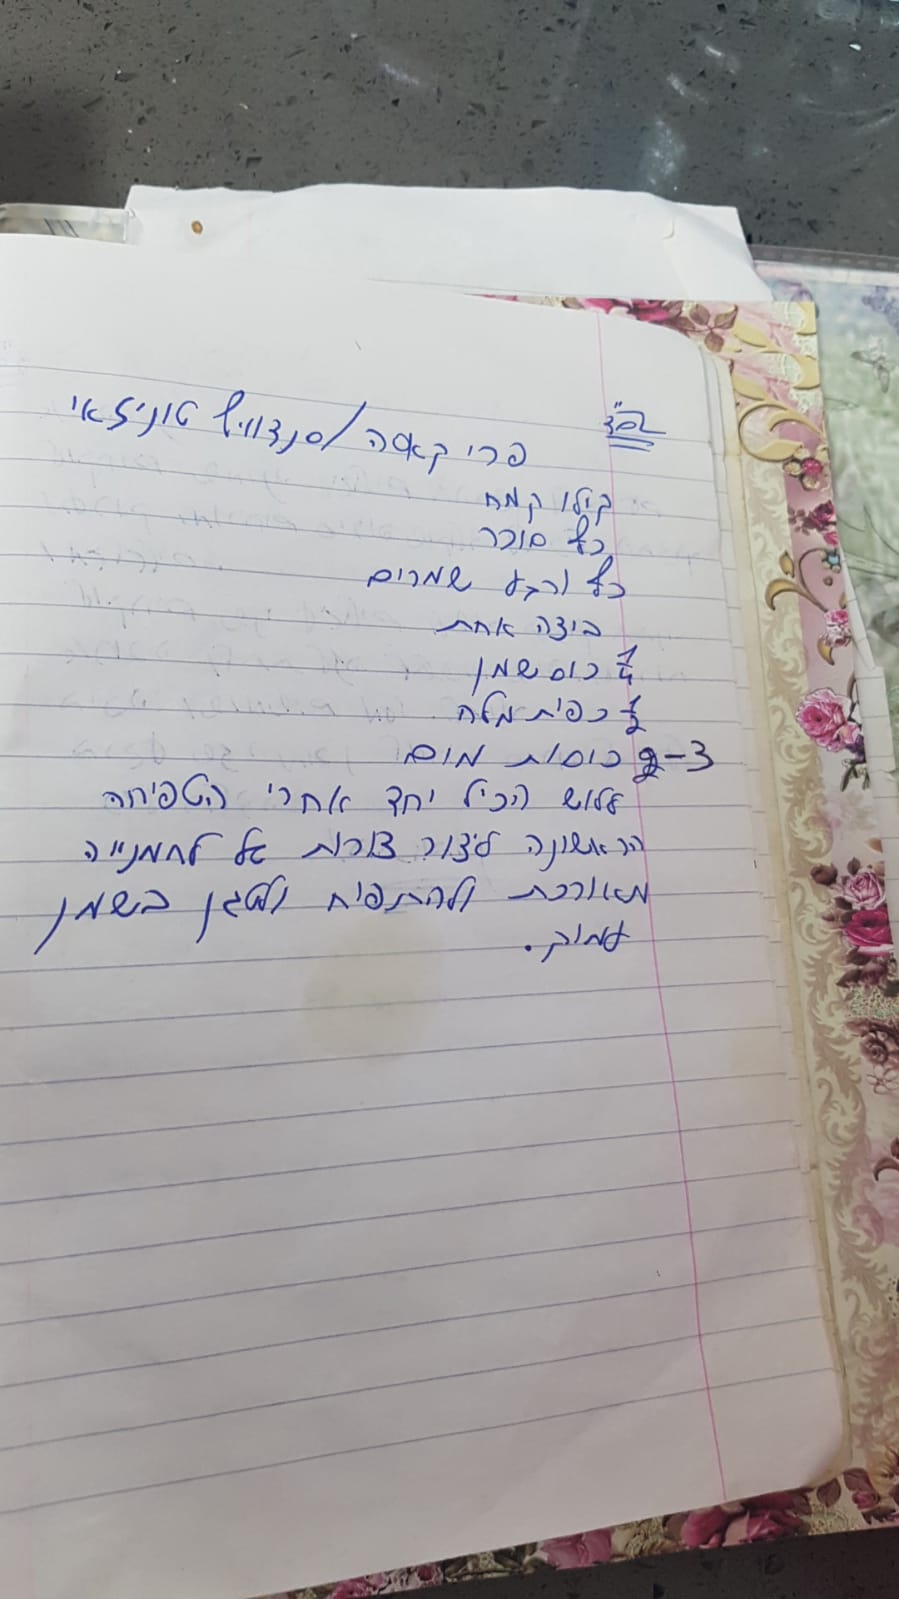 בס"ד
פריקאסה/סנדוויץ טוניזאי
קילו קמח
כף סוכר
כף ורבע שמרים
ביצה אחת
1/4 כוס שמן
1/2 כפית מלח
2-3 כוסות מים
ללוש הכיל יחד אחרי הטפיחה
הראשונה ליצור צורות של לחמנייה
מאורכת ולהתפיח ולטגן בשמן
עמוק.